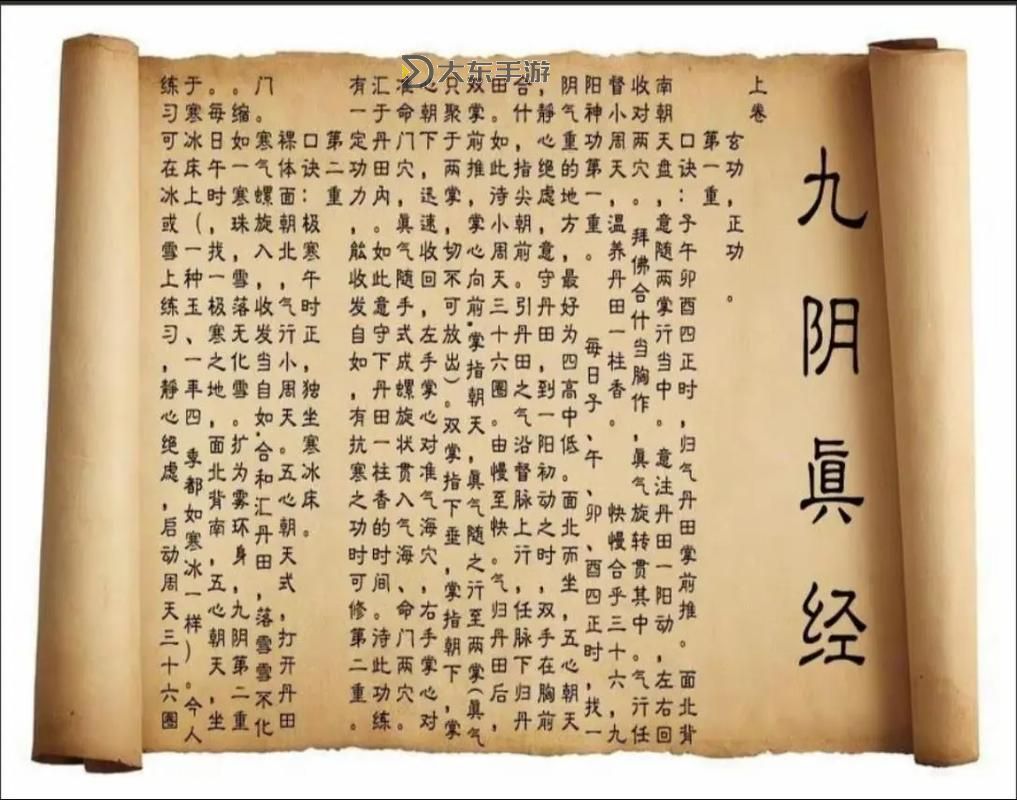 大东手游
九阴眞经
上卷
玄功，正功。
第一重
口诀：子午卯酉四正时，归气丹田掌前推。面北背
南朝天盘，意随两掌行当中。意注丹田一阳动，左右回
收对两穴。拜佛合什当胸作，眞气旋转贯其中。气行任
督小周天，温养丹田一柱香。快慢合乎三十六，九
阳神功第一重。每日子、午、卯、酉四正时，找一
阴气重的地方，最好为四高中低。面北而坐，五心朝天
，静心绝虑，意守丹田，到一阳初动之时，双手在胸前
合什，指尖朝前。引丹田之气沿督脉上行，任脉下归丹
田。如此待小周天三十六圈。由慢至快。气归丹田后，
双掌前推，掌心向前.掌指朝天，眞气随之行至两掌(眞气
只聚于两掌，切不可放出)。双掌指下垂，掌指朝下，掌
心朝下，迅速收回，左手掌心对准气海穴，右手掌心对
准命门穴，眞气随手式成螺旋状贯入气海、命门两穴。
汇于丹田内。如此意守下丹田一柱香的时间。待此功练
有一定功力，能收发自如，有抗寒之功时可修第二重。
第二重
口诀：极寒午时正，独坐寒冰床。
裸体面朝北，气行小周天。五心朝天式，打开丹田
门，寒气螺旋入，收发当自如.合和汇丹田，落雪雪不化
。缩如一寒珠，雪落无化雪。扩为雾环身，九阴第二重
。每日午时，找一极寒之地，面北背南，五心朝天，坐
于寒冰床上(一种玉、一年四季都如寒冰一样)。今人
练习可在冰或雪上练习，静心绝虑，启动周天三十六圈